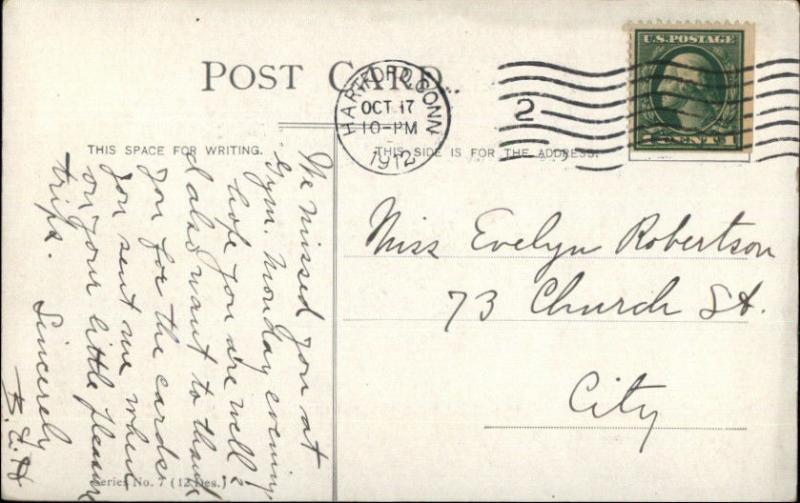 POST CARD
HARTFORD, CONN
OCT 17
10-PM
1912
2
U.S. POSTAGE
1 CENT 1
THIS SPACE FOR WRITING.
THIS SIDE IS FOR THE ADDRESS.
We missed you at
Gym. Monday evening
hope you are well?
I also want to thank
you for the cards
you sent me when
on your little pleasure
trips.
Sincerely
Miss Evelyn Robertson
73 Church St.
City
Series No. 7 (12 Des.)